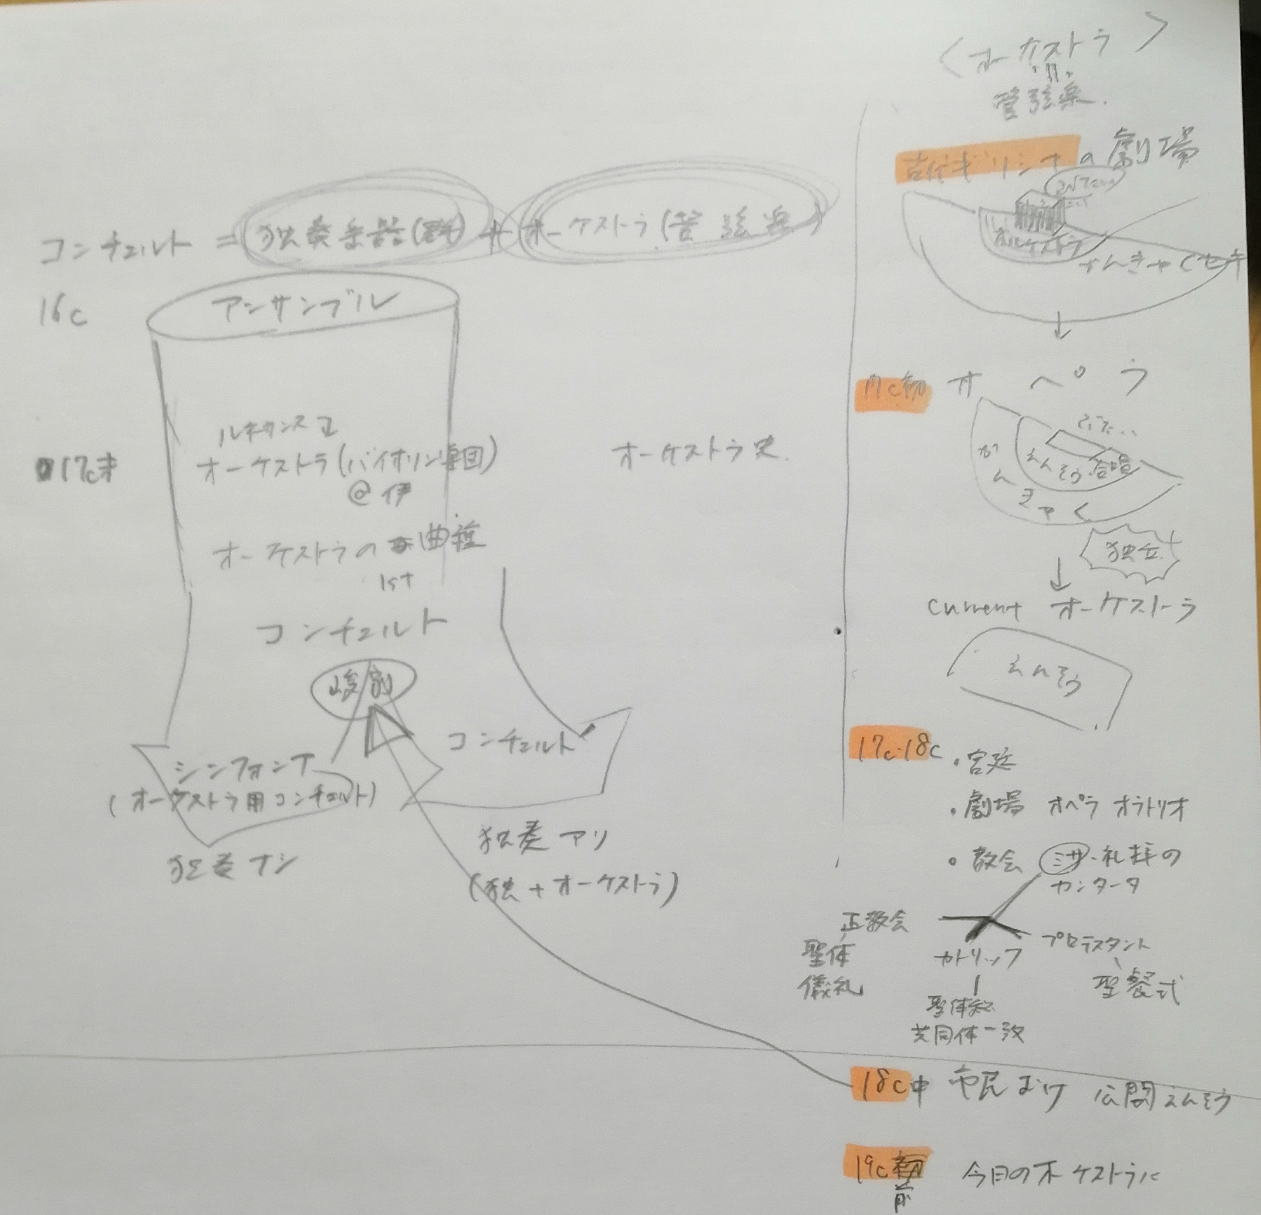 コンチェルト = 独奏楽器(群) + オーケストラ(管弦楽)
16c
アンサンブル
17c末
ルネサンス
オーケストラ(バイオリン軍団)
@伊
オーケストラ史
オーケストラの曲種
1st
コンチェルト
峻別
シンフォニア
(オーケストラ用コンチェルト)
独奏ナシ
コンチェルト
独奏アリ
(独+オーケストラ)
<オーケストラ>
管弦楽.
古代ギリシャの劇場
ぶたい
オルケストラ
かんきゃくセキ
17c初 オペラ
ぶたい
えんそう 合唱
かんきゃく
独立
current オーケストーラ
えんそう
17c-18c
・宮廷
・劇場 オペラ オラトリオ
・教会 ミサ・礼拝の
カンタータ
正教会
聖体
儀礼
カトリック
共同体一致
プロテスタント
聖餐式
18c中 市民むけ 公開えんそう
19c
前
今日のオケストラに